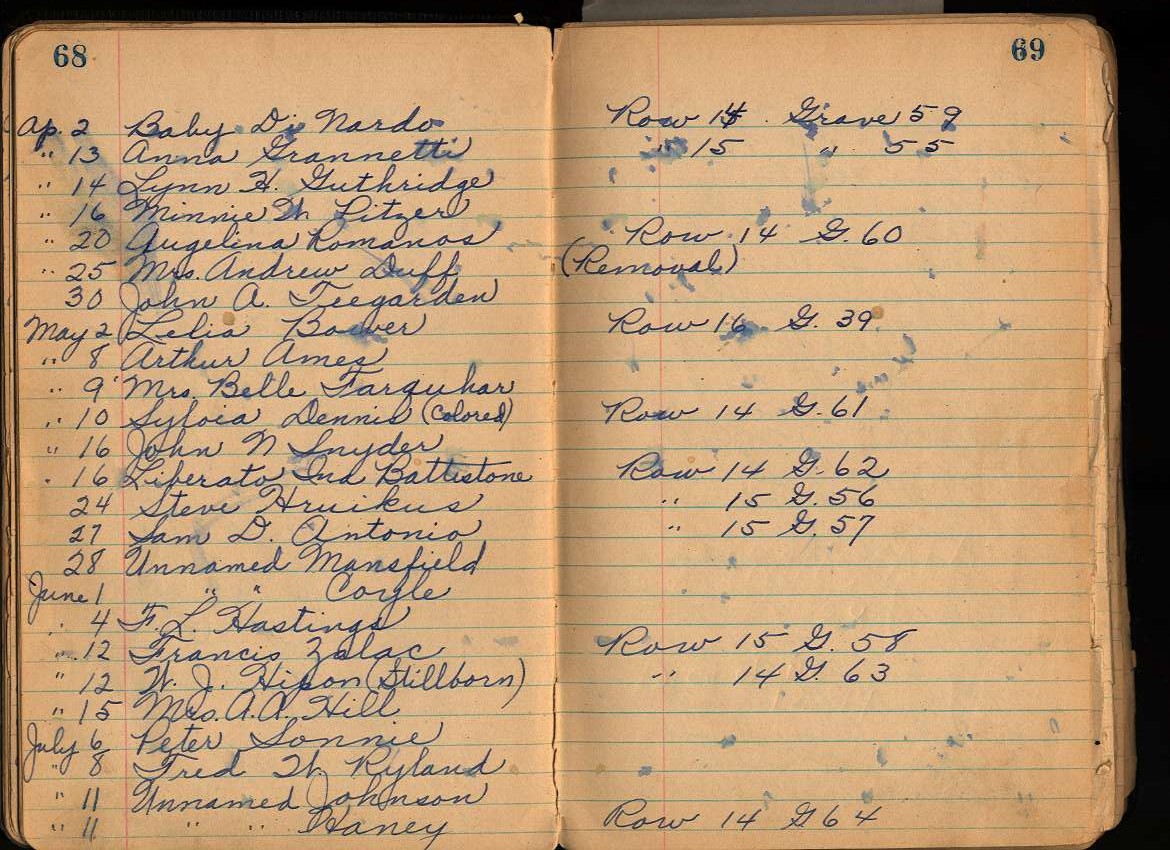 68
69
Ap. 2 Baby Di Nardo Row 14 Grave 59
" 13 Anna Grannetti " 15 " 55
" 14 Lynn H. Guthridge
" 16 Minnie W Litzer
" 20 Augelina Romanos Row 14 G. 60
" 25 Mrs. Andrew Duff (Removal)
30 John A. Teegarden
May 2 Lelia Bower Row 16 G. 39
" 8 Arthur Ames
" 9 Mrs. Belle Farquhar
" 10 Sylvia Dennis (Colored) Row 14 G. 61
" 16 John N Snyder
" 16 Liberato Ind Battistone Row 14 G. 62
24 Steve Hruikus " 15 G. 56
27 Sam D. Antonio " 15 G. 57
28 Unnamed Mansfield
June 1 " " Coyle
" 4 F. L. Hastings
" 12 Francis Zalac Row 15 G. 58
" 12 W. J. Hixon (Stillborn) " 14 G. 63
" 15 Mrs. A. A. Hill
July 6 Peter Sonnie
" 8 Fred W. Ryland
" 11 Unnamed Johnson
" 11 " " Haney Row 14 G 64